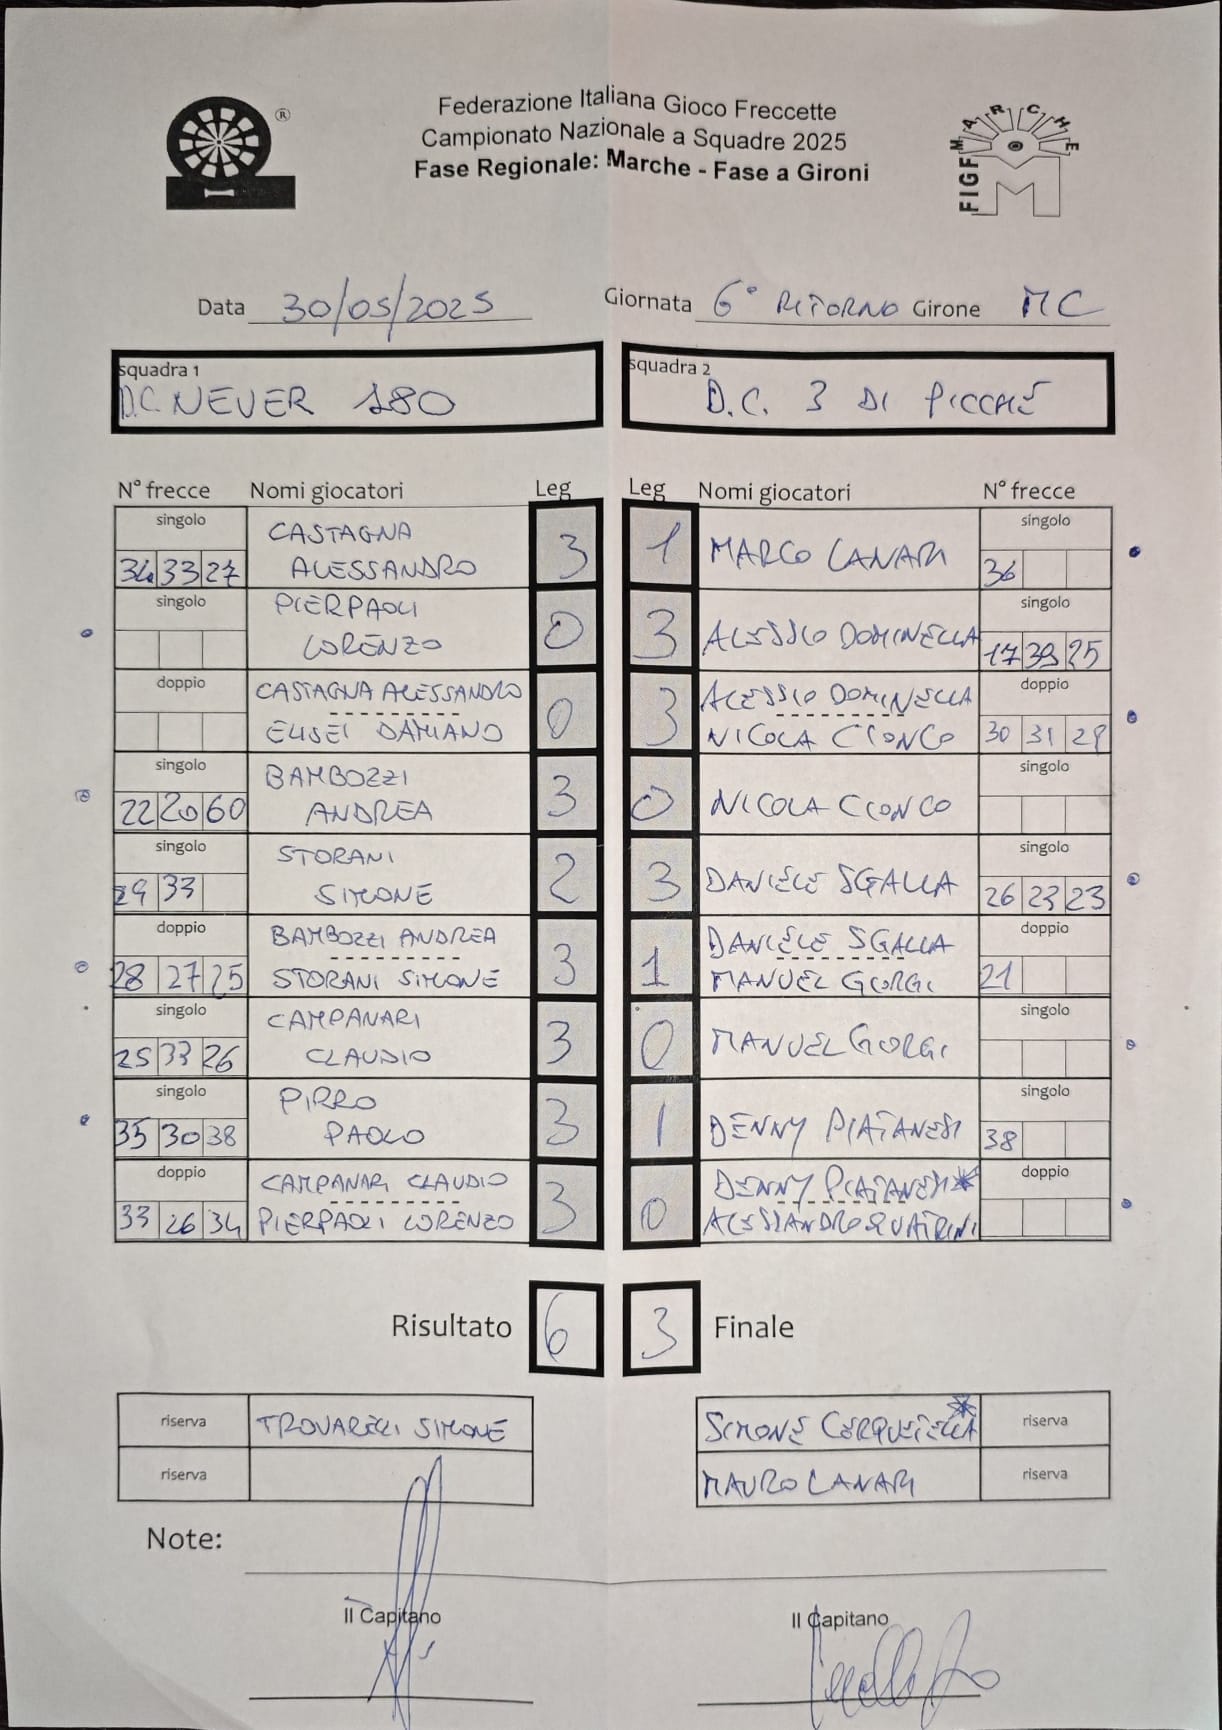 Federazione Italiana Gioco Freccette
Campionato Nazionale a Squadre 2025
Fase Regionale: Marche - Fase a Gironi
®
FIGF MARCHE
Data 30/05/2025 Giornata 6° RITORNO Girone MC
squadra 1 squadra 2
D.C. NEVER 180 D.C. 3 DI PICCHÉ
N° frecce Nomi giocatori Leg Leg Nomi giocatori N° frecce
singolo CASTAGNA singolo
34 33 27 ALESSANDRO 3 1 MARCO CANARI 36
singolo PIERPAOLI singolo
LORENZO 0 3 ALESSIO DOMINELLA 17 39 25
doppio CASTAGNA ALESSANDRO ALESSIO DOMINELLA doppio
ELISEI DAMIANO 0 3 NICOLA CIONCO 30 31 29
singolo BAMBOZZI singolo
22 20 60 ANDREA 3 0 NICOLA CIONCO
singolo STORANI singolo
29 33 SIMONE 2 3 DANIELE SGALLA 26 23 23
doppio BAMBOZZI ANDREA DANIELE SGALLA doppio
28 27 25 STORANI SIMONE 3 1 MANUEL GIORGI 21
singolo CAMPANARI singolo
25 33 26 CLAUDIO 3 0 MANUEL GIORGI
singolo PIRRO singolo
35 30 38 PAOLO 3 1 DENNY PIATANESI 38
doppio CAMPANARI CLAUDIO DENNY PIATANESI* doppio
33 26 34 PIERPAOLI LORENZO 3 0 ALESSANDRO QUATRINI
Risultato 6 3 Finale
riserva TROVARELLI SIMONE SIMONE CERQUETELLA* riserva
riserva MAURO CANARI riserva
Note:
Il Capitano Il Capitano